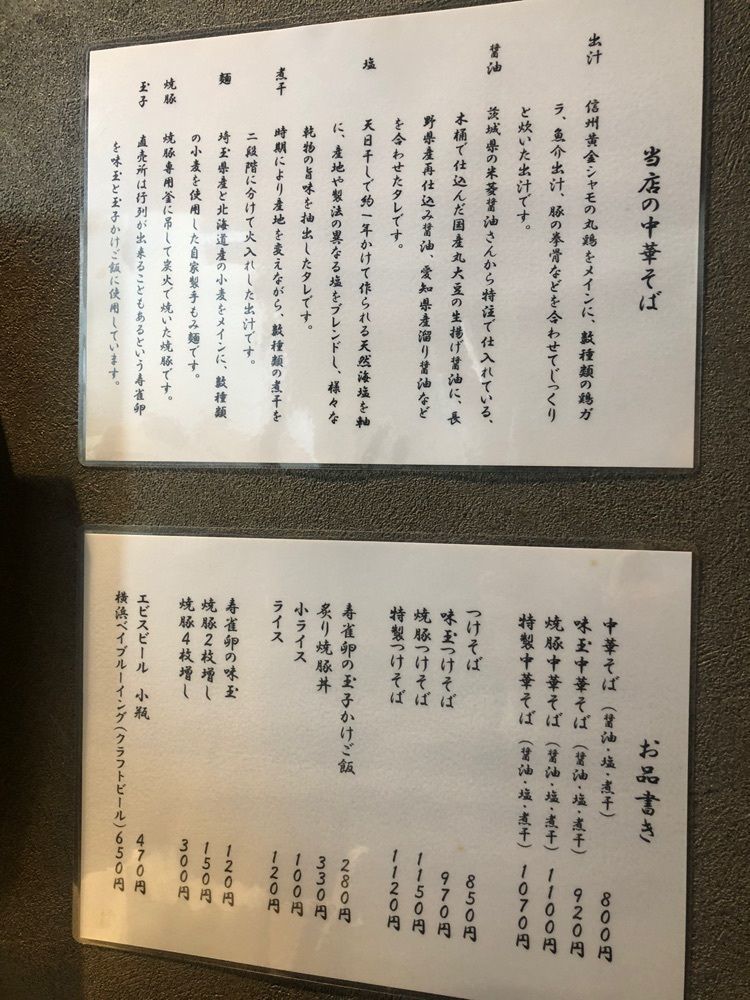 当店の中華そば
出汁 信州黄金シャモの丸鶏をメインに、数種類の鶏ガ
ラ、魚介出汁、豚の拳骨などを合わせてじっくり
と炊いた出汁です。
醤油 茨城県の米菱醤油さんから特注で仕入れている、
木桶で仕込んだ国産丸大豆の生揚げ醤油に、長
野県産再仕込み醤油、愛知県産溜り醤油など
を合わせたタレです。
塩 天日干しで約一年かけて作られる天然海塩を軸
に、産地や製法の異なる塩をブレンドし、様々な
乾物の旨味を抽出したタレです。
煮干 時期により産地を変えながら、数種類の煮干を
二段階に分けて火入れした出汁です。
麺 埼玉県産と北海道産の小麦をメインに、数種類
の小麦を使用した自家製手もみ麺です。
焼豚 焼豚専用釜に吊して炭火で焼いた焼豚です。
玉子 直売所は行列が出来ることもあるという寿雀卵
を味玉と玉子かけご飯に使用しています。
お品書き
中華そば（醤油・塩・煮干） 800円
味玉中華そば（醤油・塩・煮干） 920円
焼豚中華そば（醤油・塩・煮干） 1100円
特製中華そば（醤油・塩・煮干） 1070円
つけそば 850円
味玉つけそば 970円
焼豚つけそば 1150円
特製つけそば 1120円
寿雀卵の玉子かけご飯 280円
炙り焼豚丼 330円
小ライス 100円
ライス 120円
寿雀卵の味玉 120円
焼豚2枚増し 150円
焼豚4枚増し 300円
エビスビール 小瓶 470円
横浜ベイブルーイング(クラフトビール) 650円